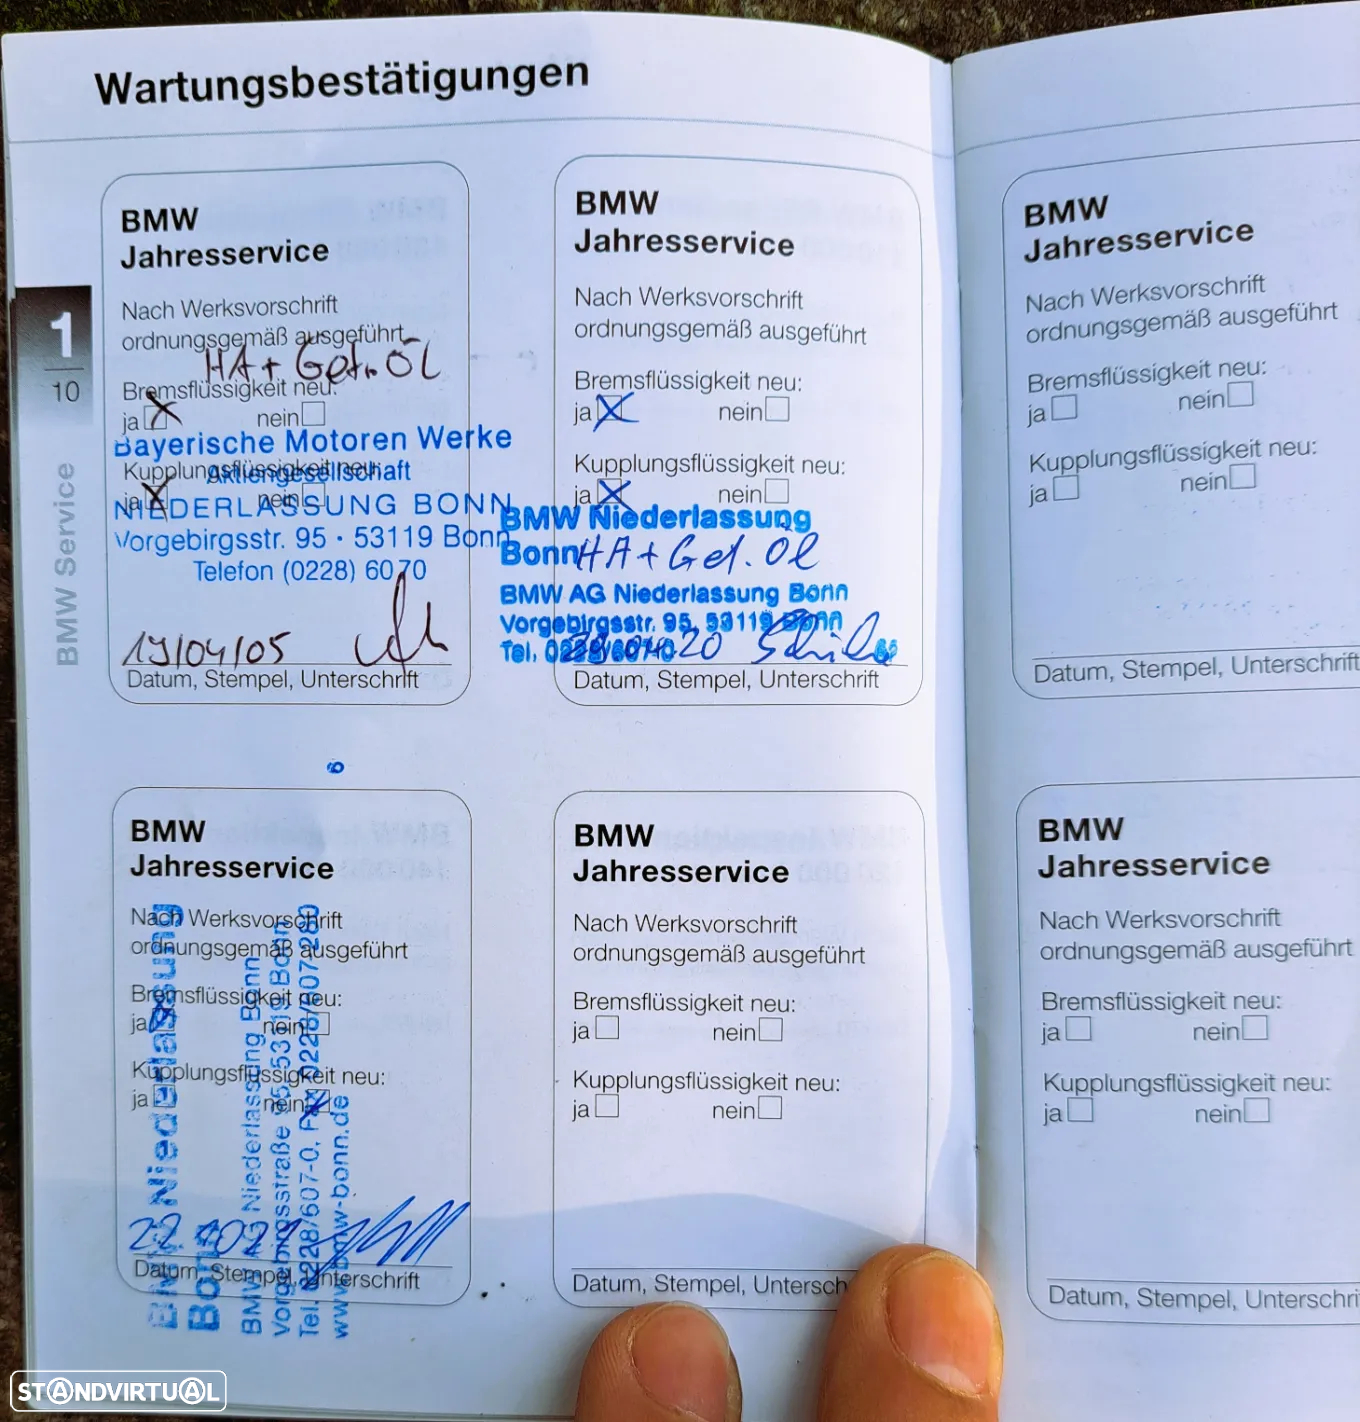 Wartungsbestätigungen
BMW
Jahresservice
Nach Werksvorschrift
ordnungsgemäß ausgeführt
HA + Getr. Öl
Bremsflüssigkeit neu:
ja nein
Bayerische Motoren Werke
Kupplungsflüssigkeit neu:
Aktiengesellschaft
ja nein
NIEDERLASSUNG BONN
Vorgebirgsstr. 95 · 53119 Bonn
Telefon (0228) 60 70
19/04/05
Datum, Stempel, Unterschrift
BMW
Jahresservice
Nach Werksvorschrift
ordnungsgemäß ausgeführt
Bremsflüssigkeit neu:
ja nein
Kupplungsflüssigkeit neu:
ja nein
BMW Niederlassung
Bonn HA + Get. Öl
BMW AG Niederlassung Bonn
Vorgebirgsstr. 95, 53119 Bonn
Tel.
Datum, Stempel, Unterschrift
BMW
Jahresservice
Nach Werksvorschrift
ordnungsgemäß ausgeführt
Bremsflüssigkeit neu:
ja nein
Kupplungsflüssigkeit neu:
ja nein
Datum, Stempel, Unterschrift
1
10
BMW Service
6
BMW
Jahresservice
Nach Werksvorschrift
ordnungsgemäß ausgeführt
Bremsflüssigkeit neu:
ja nein
Kupplungsflüssigkeit neu:
ja nein
Datum, Stempel, Unterschrift
BMW Niederlassung
Bonn
BMW AG Niederlassung Bonn
Vorgebirgsstraße 95, 53119 Bonn
Tel. 0228/607-0, Fax 0228/607-280
www.bmw-bonn.de
BMW
Jahresservice
Nach Werksvorschrift
ordnungsgemäß ausgeführt
Bremsflüssigkeit neu:
ja nein
Kupplungsflüssigkeit neu:
ja nein
Datum, Stempel, Untersch
BMW
Jahresservice
Nach Werksvorschrift
ordnungsgemäß ausgeführt
Bremsflüssigkeit neu:
ja nein
Kupplungsflüssigkeit neu:
ja nein
Datum, Stempel, Unterschri
STANDVIRTUAL